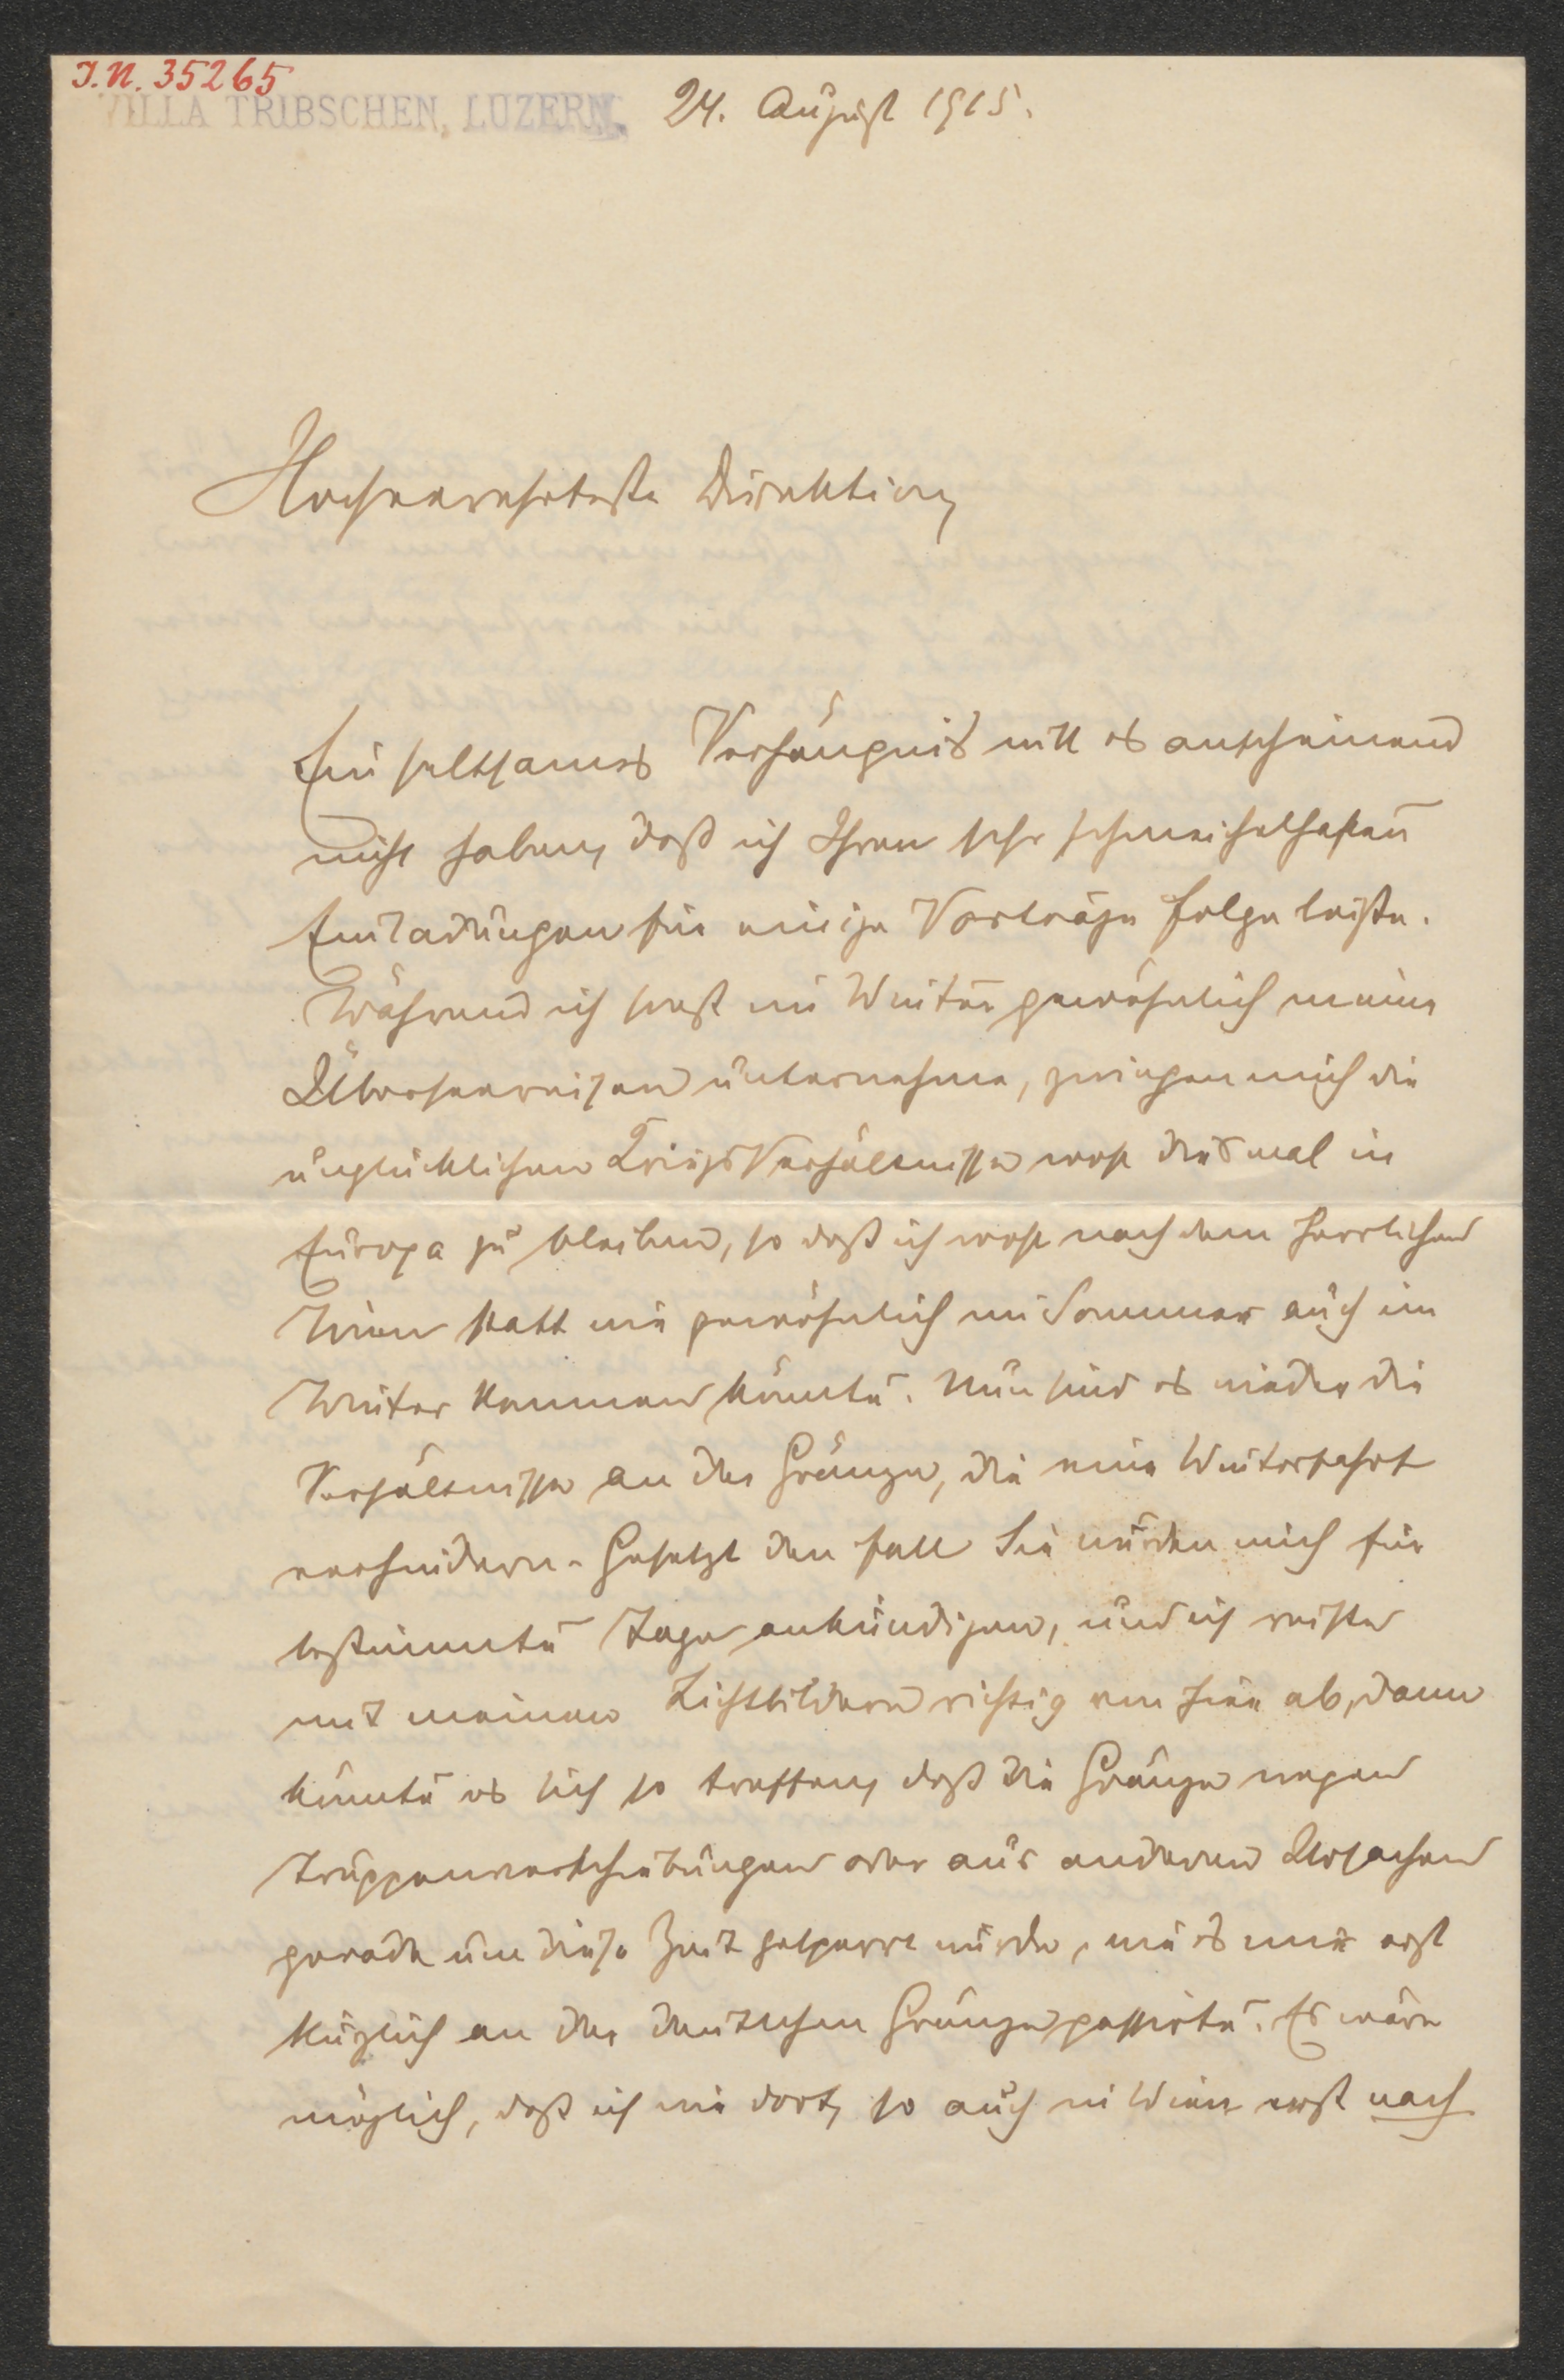 J.N. 35265
VILLA TRIBSCHEN, LUZERN. 24. August 1915.
Hochverehrteste Direktion,
Ein seltsames Verhängnis will es anscheinend
nicht haben, daß ich Ihren sehr schmeichelhaften
Einladungen für einige Vorträge folge leiste.
Während ich sonst im Winter gewöhnlich meine
Überseereisen unternehme, zwingen mich die
unglücklichen Kriegsverhältnisse wohl diesmal in
Europa zu bleiben, so daß ich wohl nach dem herrlichen
Wien statt wie gewöhnlich im Sommer auch im
Winter kommen könnte. Nun sind es wieder die
Verhältnisse an der Gränze, die eine Winterfahrt
verhindern. Gesetzt den Fall Sie würden mich für
bestimmte Tage ankündigen, und ich reiste
mit meinen Lichtbildern richtig von hier ab, dann
könnte es sich so treffen, daß die Gränze wegen
Truppenverschiebungen oder aus anderen Ursachen
gerade um diese Zeit gesperrt würde, wie es mir erst
kürzlich an der deutschen Gränze passirte. Es wäre
möglich, daß ich wie dort, so auch in Wien erst nach